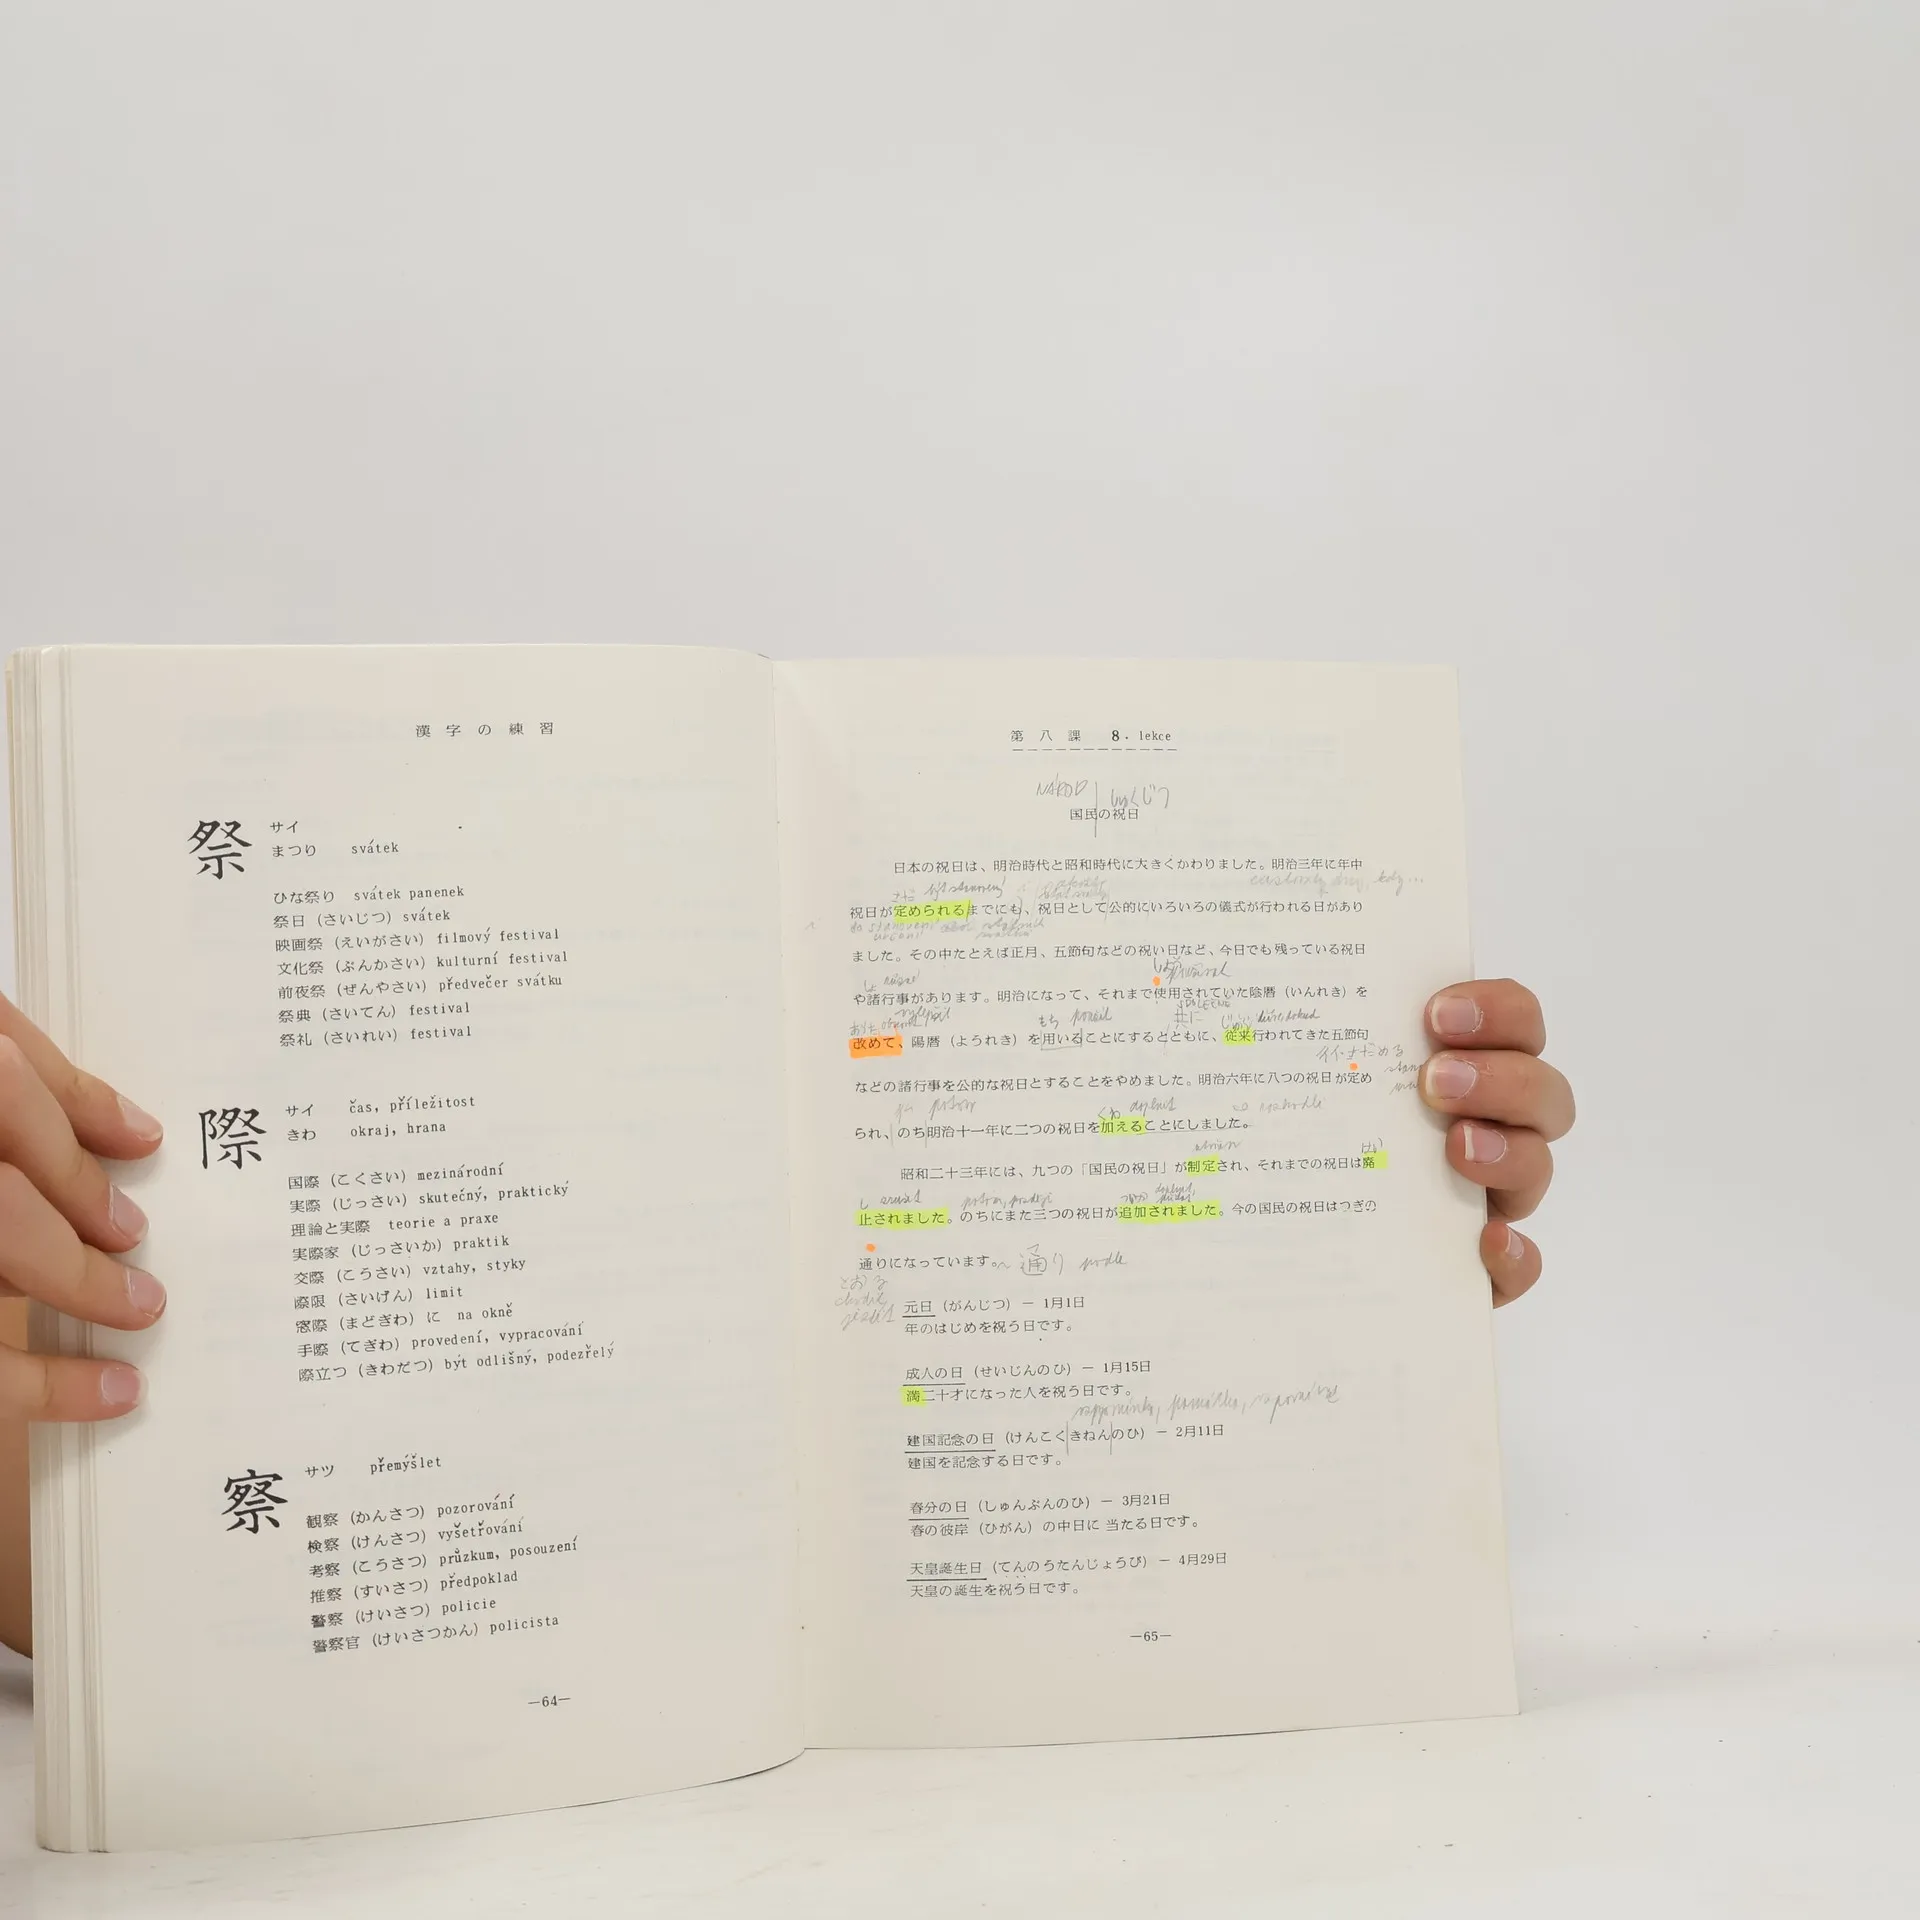 漢字の練習
祭
サイ
まつり svátek
ひな祭り svátek panenek
祭日 (さいじつ) svátek
映画祭 (えいがさい) filmový festival
文化祭 (ぶんかさい) kulturní festival
前夜祭 (ぜんやさい) předvečer svátku
祭典 (さいてん) festival
祭礼 (さいれい) festival
際
サイ čas, příležitost
きわ okraj, hrana
国際 (こくさい) mezinárodní
実際 (じっさい) skutečný, praktický
理論と実際 teorie a praxe
実際家 (じっさいか) praktik
交際 (こうさい) vztahy, styky
際限 (さいげん) limit
窓際 (まどぎわ) に na okně
手際 (てぎわ) provedení, vypracování
際立つ (きわだつ) být odlišný, podezřelý
察
サツ přemýšlet
観察 (かんさつ) pozorování
検察 (けんさつ) vyšetřování
考察 (こうさつ) průzkum, posouzení
推察 (すいさつ) předpoklad
警察 (けいさつ) policie
警察官 (けいさつかん) policista
—64—
第八課 8. lekce
NÁROD しゅくじつ
国民の祝日
日本の祝日は、明治時代と昭和時代に大きくかわりました。明治三年に年中
祝日が定められるまでにも、祝日として公的にいろいろの儀式が行われる日があり
ました。その中たとえば正月、五節句などの祝い日など、今日でも残っている祝日
や諸行事があります。明治になって、それまで使用されていた陰暦 (いんれき) を
共に
改めて、陽暦 (ようれき) を用いることにするとともに、従来行われてきた五節句
さだめる
などの諸行事を公的な祝日とすることをやめました。明治六年に八つの祝日が定め
られ、のち明治十一年に二つの祝日を加えることにしました。
昭和二十三年には、九つの「国民の祝日」が制定され、それまでの祝日は廃
止されました。のちにまた三つの祝日が追加されました。今の国民の祝日はつぎの
通りになっています。~通り podle
とおる
元日 (がんじつ) — 1月1日
年のはじめを祝う日です。
成人の日 (せいじんのひ) — 1月15日
満二十才になった人を祝う日です。
建国記念の日 (けんこくきねんのひ) — 2月11日
建国を記念する日です。
春分の日 (しゅんぶんのひ) — 3月21日
春の彼岸 (ひがん) の中日に 当たる日です。
天皇誕生日 (てんのうたんじょうび) — 4月29日
天皇の誕生を祝う日です。
—65—